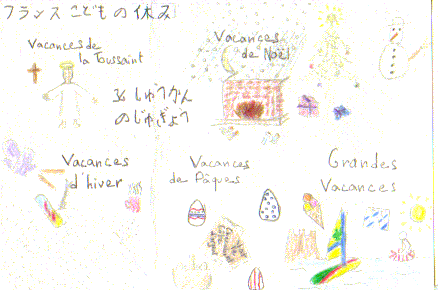 フランス こどもの休み
Vacances de
la Toussaint
36 しゅうかん
のじゅぎょう
Vacances
de Noël
Vacances
d'hiver
Vacances
de Pâques
Grandes
Vacances